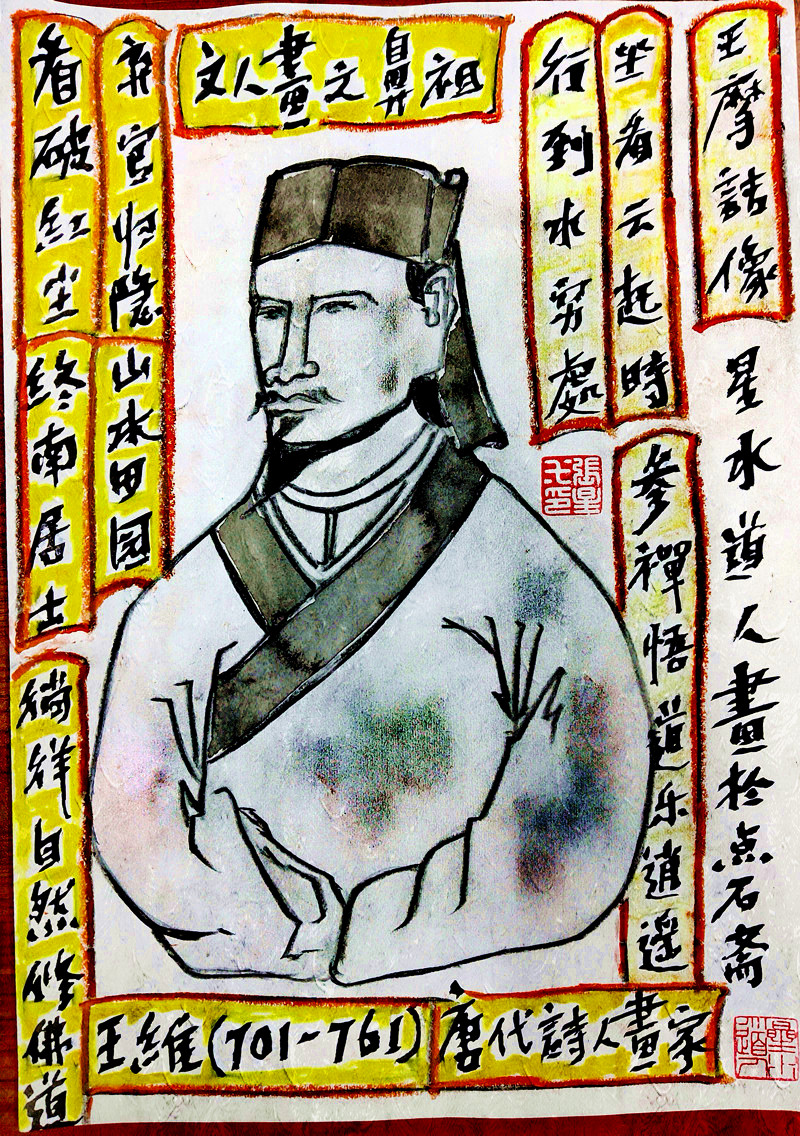 王摩詰像
星水道人畫於点石斋
坐看云起時
行到水穷處
参禪悟道乐逍遥
文人畫之鼻祖
弃官归隐
看破紅尘
山水田园
終南居士
徜徉自然修佛道
王維(701-761)
唐代詩人畫家